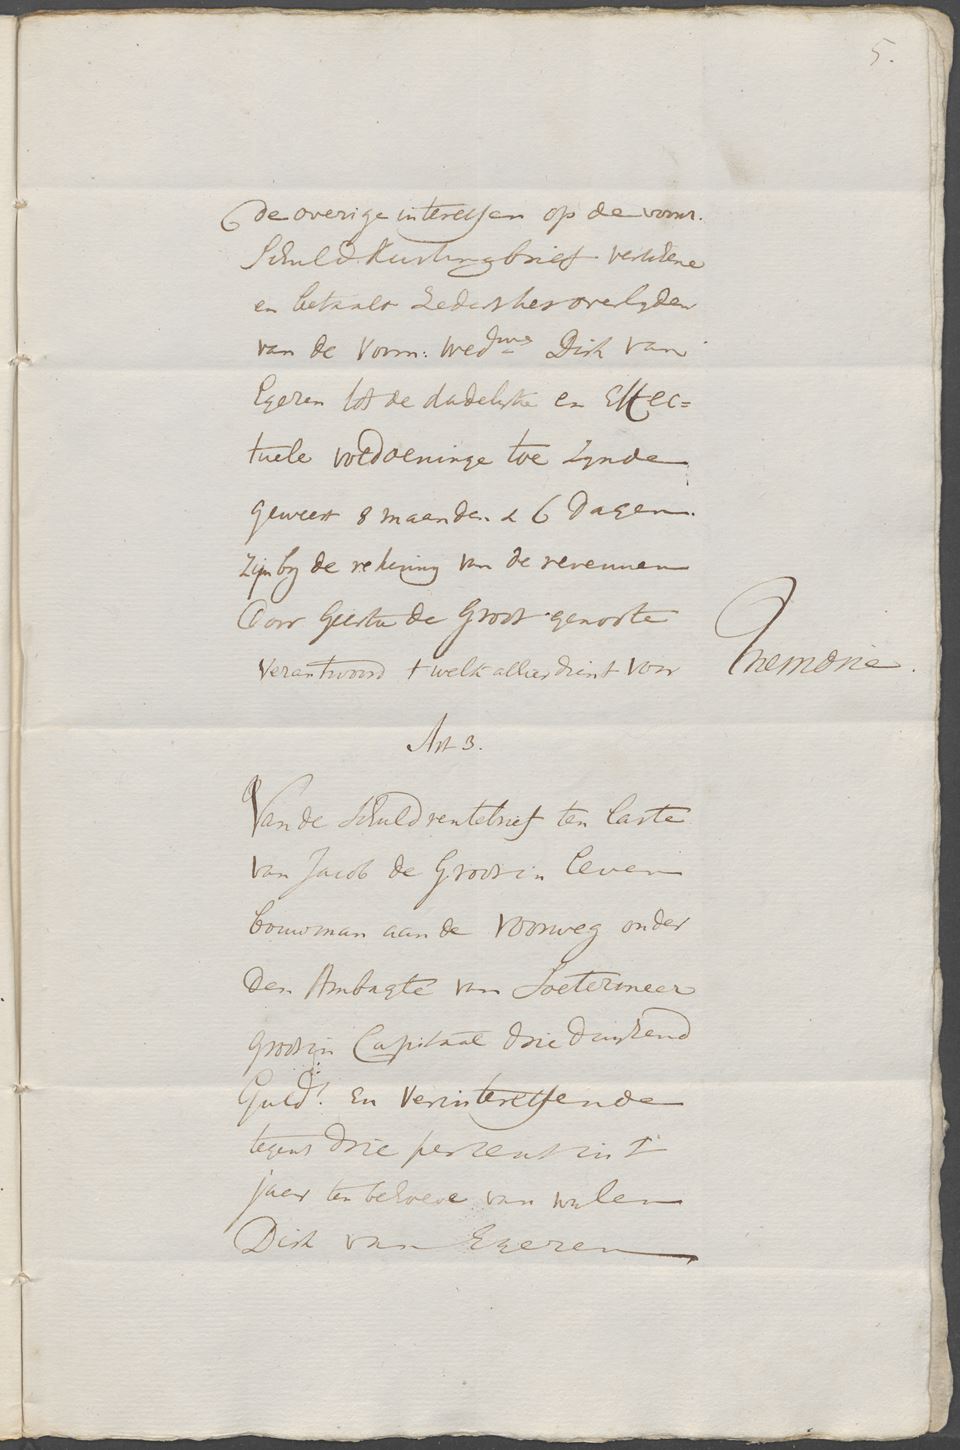 5.
De overige interessen op de voorn.
Schuld Kustingbrief verschene
en betaalt zedert het overlyden
van de Voorn: Wed:we Dirk van
Egeren tot de dadelyke en Effec=
tuele voldoeninge toe zynde
geweest 8 maanden & 6 Dagen
zyn by de rekening van de revenuen
Door Geertie de Groot genoote
verantwoord t welk alhier dient voor
Memorie.
Art 3.
Van de Schuldrentebrief ten laste
van Jacob de Groot in leven
bouwman aan de Voorweg onder
den Ambagte van Soetermeer
groot in Capitaal drie duyzend
Guld:s En Verinteressende
tegens drie percent in t
jaar ten behoeve van wylen
Dirk van Egeren